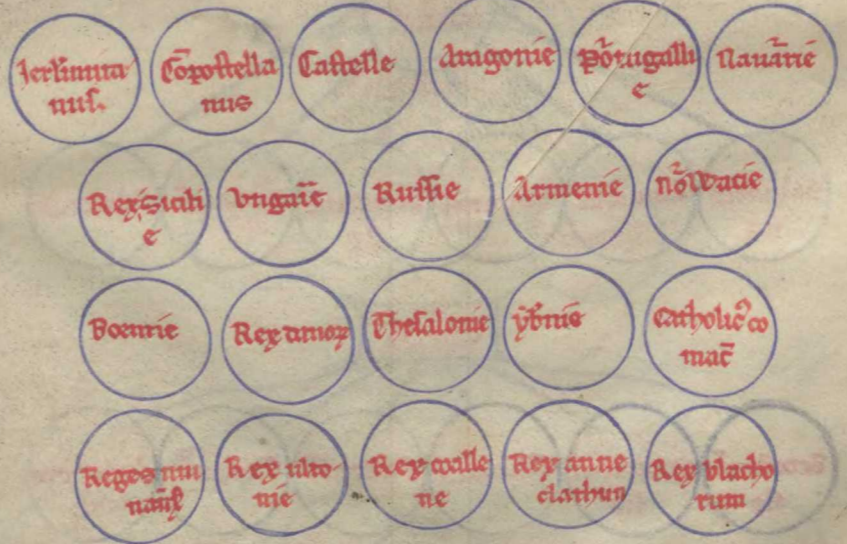 Ierlimita
nus.
Cōpostella
nus
Castelle
Aragonie
Portugalli
e
Nauarrie
Rex Sicili
e
Vngarie
Russie
Armenie
Norwacie
Boemie
Thesalonie
ybnie
Catholic⁹ co
mac̄
Reges mu
Rex ulto
nie
Rex walle
ne
Rex anne
clathun
Rex blacho
rum